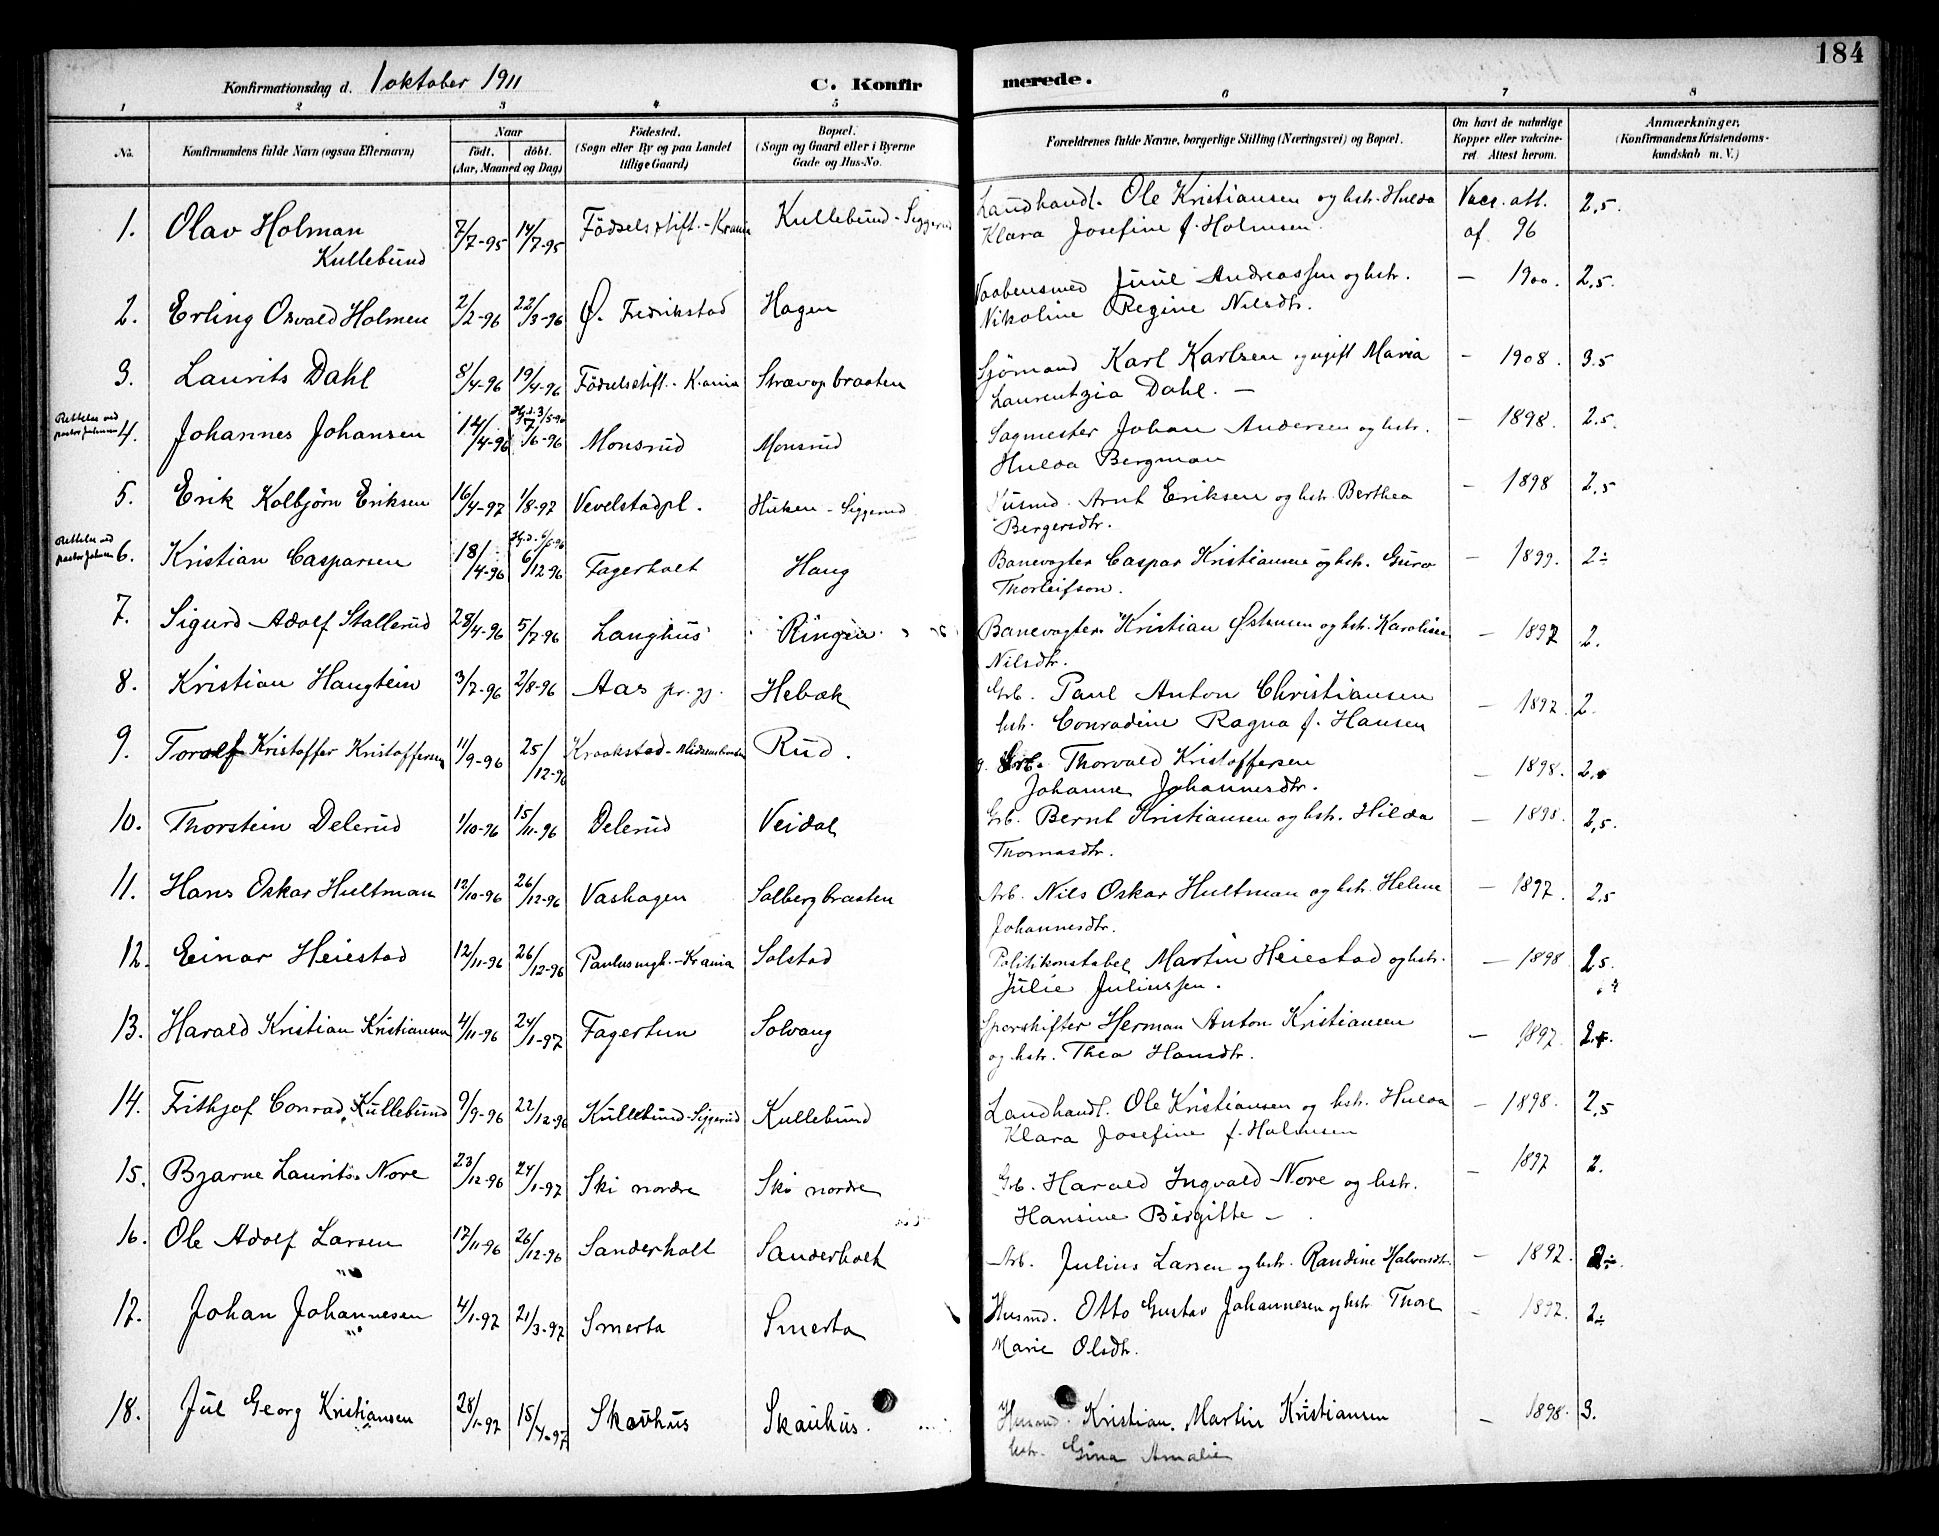 184
Konfirmationsdag d. 1 oktober 1911 C. Konfirmerede.
1 2 3 4 5 6 7 8
No. Konfirmandens fulde Navn (ogsaa Efternavn) Naar födt. döbt. (Aar, Maaned og Dag) Födested. (Sogn eller By og paa Landet tillige Gaard) Bopæl. (Sogn og Gaard eller i Byerne Gade og Hus-No. Forældrenes fulde Navne, borgerlige Stilling (Næringsvei) og Bopæl. Om havt de naturlige Kopper eller vakcineret. Attest herom. Anmærkninger, (Konfirmandens Kristendomskundskab m. V.)
1. Olav Holman Kullebund 7/7-95 14/7-95 Födselsstift.-Krania Kullebund-Siggerud Landhandl. Ole Kristiansen og hstr. Hulda Vacc. att. 2,5.
Klara Josefine f. Holmsen. af 96
2. Erling Osvald Holmen 2/2-96 22/3-96 Ø. Fredrikstad Hagen Vaabensmed Juul Andreassen og hstr. — 1900. 2,5.
Nikoline Regine Nilsdtr.
3. Laurits Dahl 8/4-96 19/4-96 Födselsstift.-Krania Strævopbraaten Sjömand Karl Karlsen og ugift Maria — 1908. 3.5
Laurentzia Dahl. —
Rettelse ved pastor Johnsen 4. Johannes Johansen 14/4-96 Hjd. 3/5-96 7/6-96 Monsrud Monsrud Sagmester Johan Andersen og hstr. — 1898. 2.5.
Hulda Bergman
5. Erik Kolbjörn Eriksen 16/4-97 1/8-97 Vevelstadpl. Huken-Siggerud Husmd. Arnt Eriksen og hstr. Berthea — 1898 2,5
Bergersdtr.
Rettelse ved pastor Johnsen 6. Kristian Casparsen 18/4-96 6/12-96 Fagerholt Haug Banevogter Caspar Kristiansen og hstr. Guro — 1899. 2÷
Thorleifson.
7. Sigurd Adolf Stallerud 28/4-96 5/7-96 Langhus Ringen Banevogter Kristian Østensen og hstr. Karoline — 1897 2.
Nilsdtr.
8. Kristian Haugtein 3/7-96 2/8-96 Aas pr. gj. Hebæk Grb. Paul Anton Christiansen — 1897. 2.
hstr. Conradine Ragna f. Hansen
9. Toralf Kristoffer Kristoffersen 11/9-96 25/12-96 Kraakstad-Rud. g. Grb. Thorvald Kristoffersen — 1898. 2.
Johanne Johannesdtr.
10. Thorstein Delerud 1/10-96 15/11-96 Delerud Veidal Grb. Bernt Kristiansen og hstr. Hilda — 1898. 2,5.
Thomasdtr.
11. Hans Oskar Hultman 12/10-96 26/12-96 Vashagen Solbergbraaten Arb. Nils Oskar Hultman og hstr. Helene — 1897. 2,5
Johannesdtr.
12. Einar Heiestad 12/11-96 26/12-96 Paulusmgh.-Krania Solstad Politikonstabel Martin Heiestad og hstr. — 1898 2,5.
Julie Juliussen.
13. Harald Kristian Kristiansen 4/11-96 24/1-97 Fagertun Solvang Sporskifter Herman Anton Kristiansen — 1897. 2+.
og hstr. Thea Hansdtr.
14. Frithjof Conrad Kullebund 9/9-96 22/12-96 Kullebund-Siggerud Kullebund Landhandl. Ole Kristiansen og hstr. Hulda — 1898. 2,5
Klara Josefine f. Holmsen
15. Bjarne Laurits Nore 23/12-96 24/1-97 Ski nordre Ski nordre Grb. Harald Ingvald Nore og hstr. — 1897 2.
Hansine Birgitte —
16. Ole Adolf Larsen 17/11-96 26/12-96 Sanderholt Sanderholt Arb. Julius Larsen og hstr. Randine Halvorsdtr. — 1897. 2÷
17. Johan Johannesen 4/1-97 21/3-97 Smerta Smerta Husmd. Otto Gustav Johannesen og hstr. Thore — 1897. 2÷
Marie Olsdtr.
18. Jul Georg Kristiansen 28/1-97 18/4-97 Skauhus Skauhus. Husmd. Kristian Martin Kristiansen — 1898. 3.
hstr. Gina Amalie